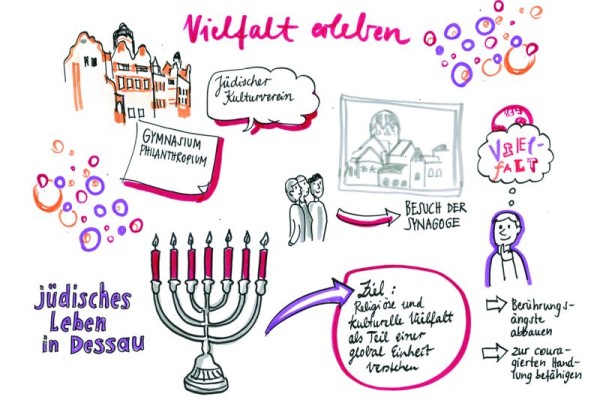 Vielfalt erleben
Jüdischer
Kulturverein
GYMNASIUM
PHILANTHROPIUM
VIEL-
FALT
BESUCH DER
SYNAGOGE
jüdisches
Leben
in Dessau
Ziel:
Religiöse und
kulturelle Vielfalt
als Teil einer
global Einheit
verstehen
Berührungs-
ängste
abbauen
zur coura-
gierten Hand-
lung befähigen